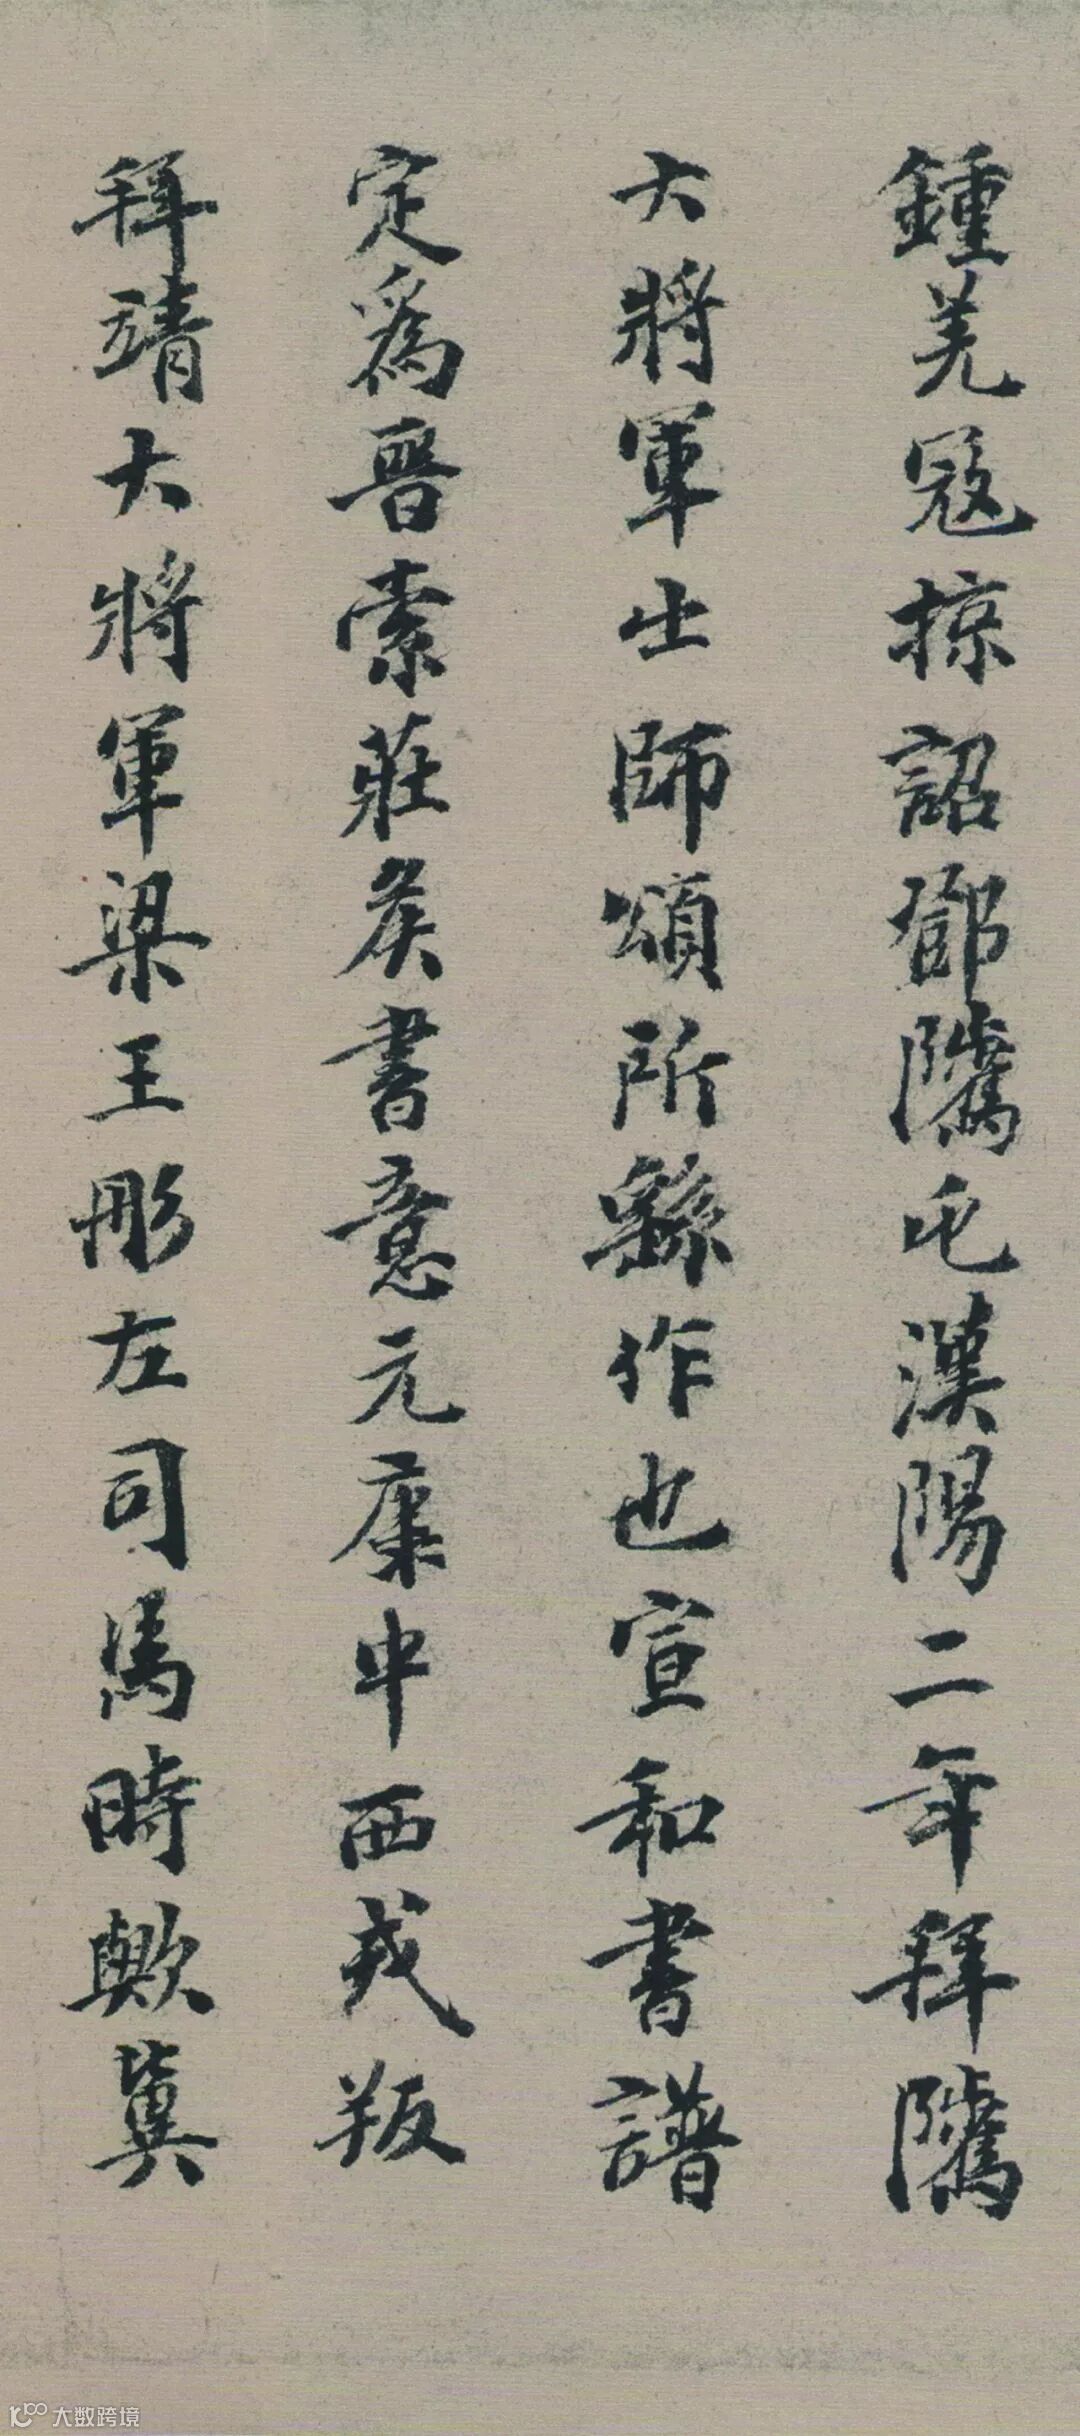 鍾羌寇掠詔鄧隲屯漢陽二年拜隲
大將軍出師頌所繇作也宣和書譜
定爲晉索莊矦書意元康中西戎叛
拜靖大將軍梁王肜左司馬時歟冀
大数跨境